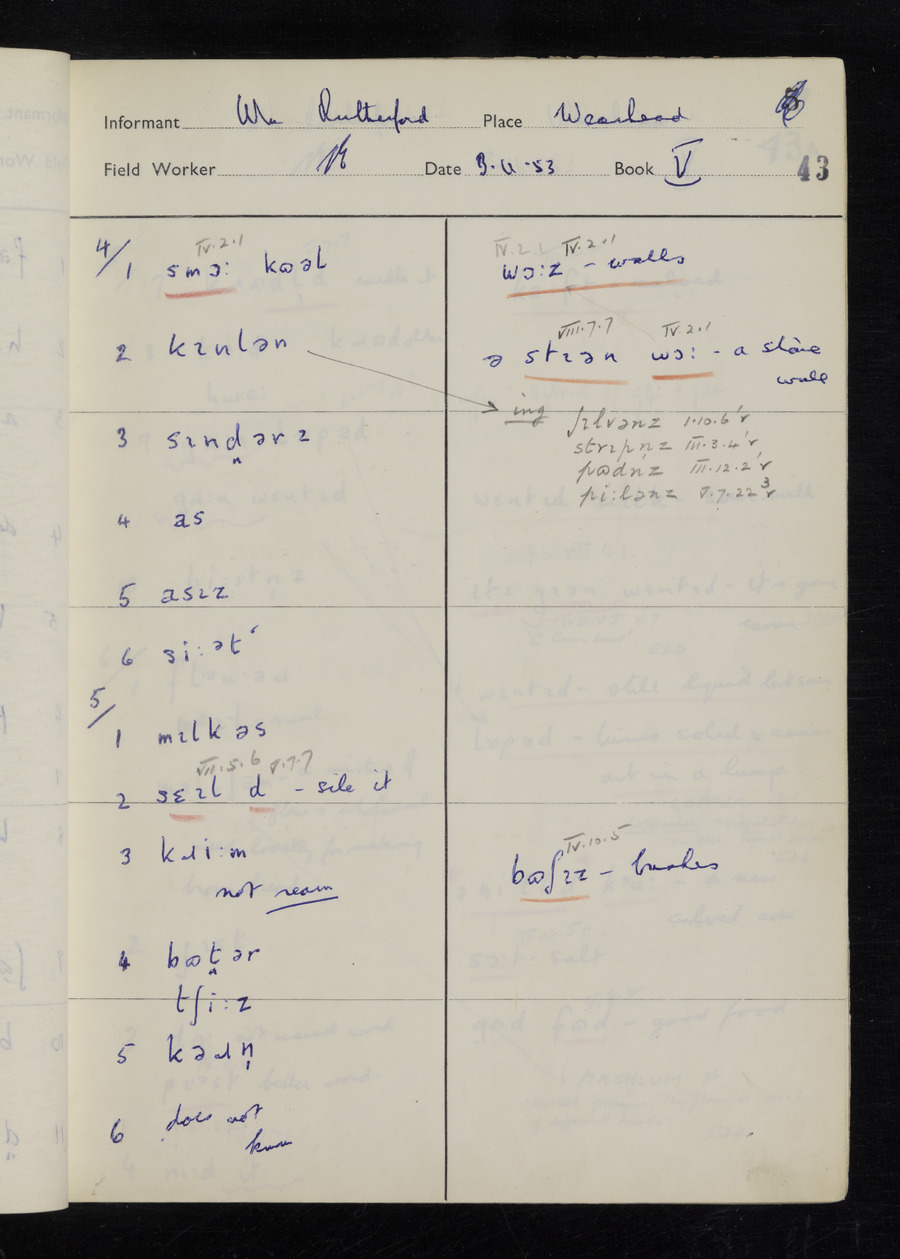 Informant Wm Rutherford Place Wearhead
Field Worker Date 3.4.53 Book V 43
4/
IV.2.1
1 smɔ: kʊəl
2 kɪnlən
3 sɪndərz
4 as
5 asɪz
6 si:ət
5/
1 mɪlkəs
VII.5.6 V.7.7
2 sɛɪl d - sile it
3 kɹi:m
not ream
4 bʊtər
tʃi:z
5 kəɹn̩
6 does not
know
IV.2.1 IV.2.1
wɔ:z - walls
VIII.7.7 IV.2.1
ə stɪən wɔ: - a stone
wall
ing ʃɪlvənz I.10.6'r
strɪpn̩z III.3.4'r
pʊdn̩z III.12.2'r
pi:lənz V.7.22³r
IV.10.5
bʊʃɪz - bushes